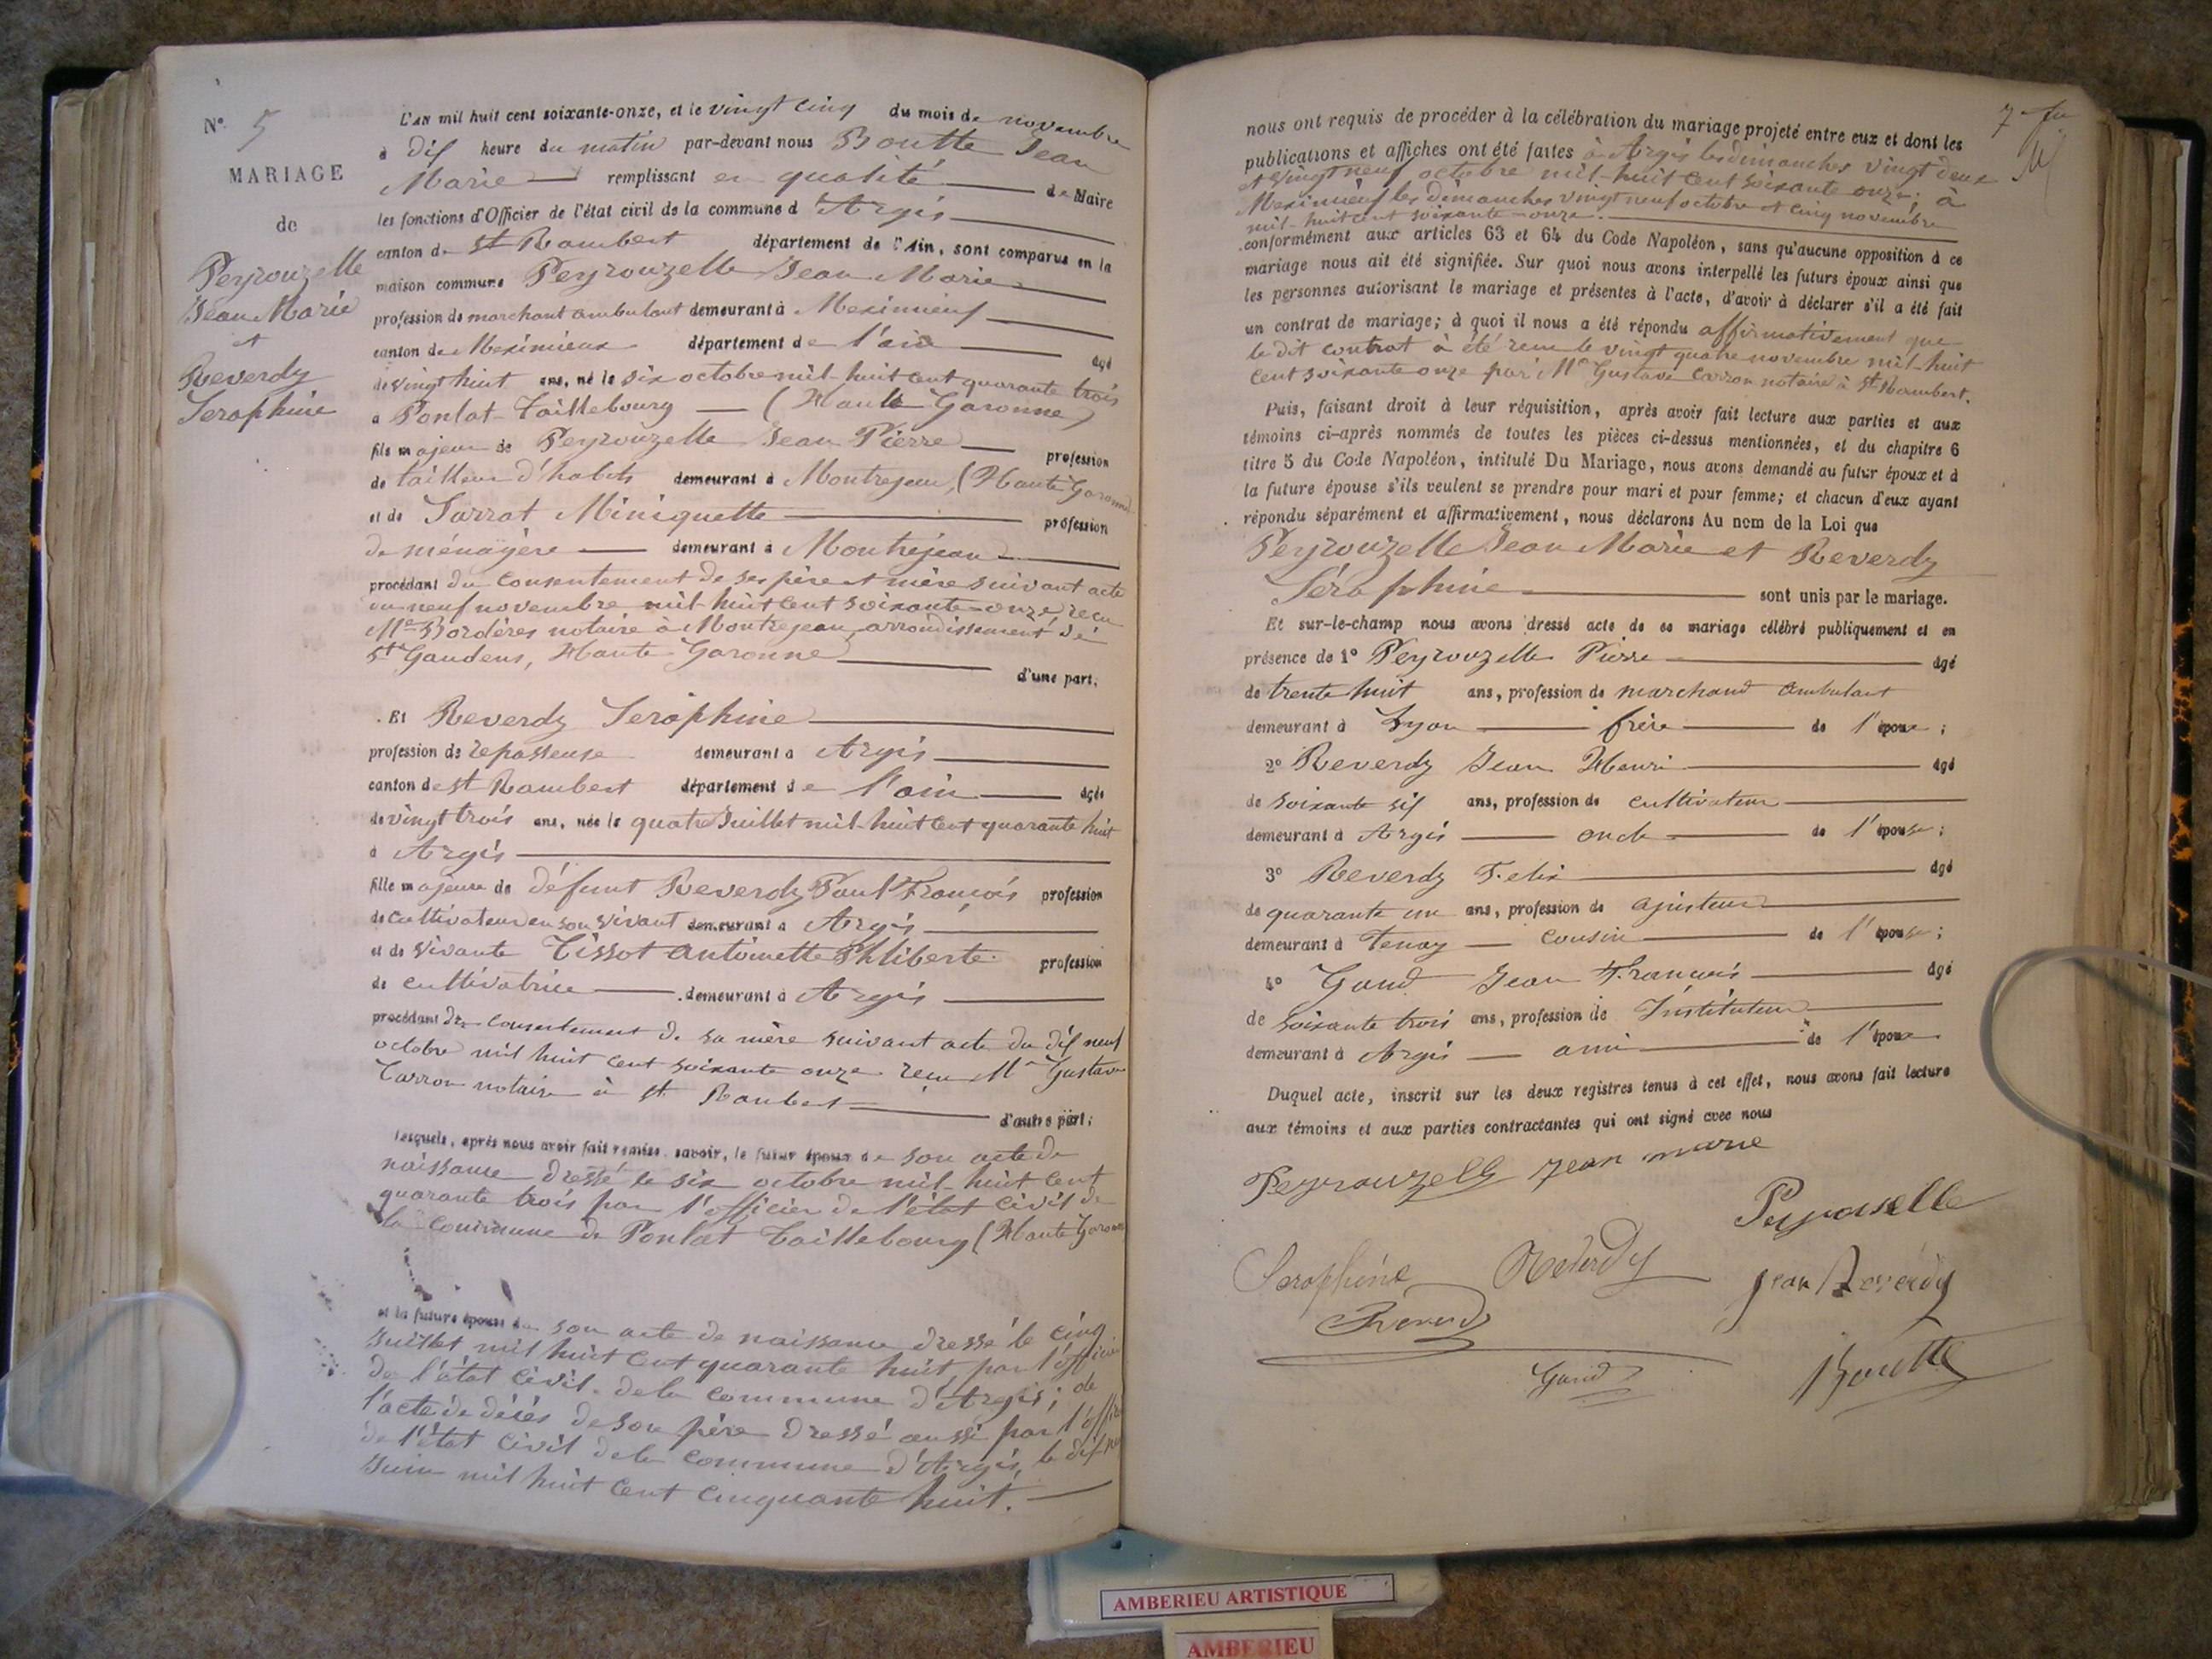 N° 5
MARIAGE
de
Peyrouzelle
Jean Marie
et
Reverdy
Seraphine
L'AN mil huit cent soixante-onze, et le vingt cinq du mois de novembre
à dix heure du matin par-devant nous Boutte Jean
Marie remplissant en qualité de Maire
les fonctions d'Officier de l'état civil de la commune d'Argis
canton de St Rambert département de l'Ain, sont comparus en la
maison commune Peyrouzelle Jean Marie
profession de marchant ambulant demeurant à Meximieux
canton de Meximieux département de l'ain âgé
de vingt huit ans, né le six octobre mil-huit cent quarante trois
à Ponlat-Taillebourg (Haute Garonne)
fils majeur de Peyrouzelle Jean Pierre profession
de tailleur d'habits demeurant à Montrejeau, (Haute Garonne
et de Sarrat Miniquette profession
de ménagère demeurant à Montrejeau
procédant du consentement de ses père et mère suivant acte
du neuf novembre mil-huit cent soixante-onze, recu
Me Bordères notaire à Montrejeau, arrondissement de
St Gaudens, Haute Garonne d'une part.
Et Reverdy Seraphine
profession de repasseuse demeurant à Argis
canton de St Rambert département de l'ain âgée
de vingt trois ans, née le quatre Juillet mil-huit cent quarante huit
à Argis
fille majeure de défunt Reverdy Paul François profession
de cultivateur en son vivant demeurant à Argis
et de vivante Tissot Antoinette Philiberte profession
de cultivatrice demeurant à Argis
procédant du consentement de sa mère suivant acte du dix neuf
octobre mil huit cent soixante onze recu Me Gustave
Carron notaire à St Rambert d'autre part;
lesquels, après nous avoir fait remise, savoir, le futur époux de son acte de
naissance dressé le six octobre mil-huit cent
quarante trois par l'officier de l'état civil de
la commune de Ponlat Taillebourg (Haute Garonne
et la future épouse de son acte de naissance dressé le cinq
Juillet mil huit cent quarante huit, par l'officier
de l'état civil de la commune d'Argis; de
l'acte de décès de son père dressé aussi par l'officier
de l'état civil de la commune d'Argis, le dix-neuf
Juin mil huit cent cinquante huit.
7
nous ont requis de procéder à la célébration du mariage projeté entre eux et dont les
publications et affiches ont été faites à Argis les dimanches vingt deux
et vingt neuf octobre mil-huit cent soixante onze; à
Meximieux les dimanches vingt neuf octobre et cinq novembre
mil-huit cent soixante-onze.
conformément aux articles 63 et 64 du Code Napoléon, sans qu'aucune opposition à ce
mariage nous ait été signifiée. Sur quoi nous avons interpellé les futurs époux ainsi que
les personnes autorisant le mariage et présentes à l'acte, d'avoir à déclarer s'il a été fait
un contrat de mariage; à quoi il nous a été répondu affirmativement que
le dit contrat à été recu le vingt quatre novembre mil-huit
cent soixante onze par Me Gustave Carron notaire à St Rambert.
Puis, faisant droit à leur réquisition, après avoir fait lecture aux parties et aux
témoins ci-après nommés de toutes les pièces ci-dessus mentionnées, et du chapitre 6
titre 5 du Code Napoléon, intitulé Du Mariage, nous avons demandé au futur époux et à
la future épouse s'ils veulent se prendre pour mari et pour femme; et chacun d'eux ayant
répondu séparément et affirmativement, nous déclarons Au nom de la Loi que
Peyrouzelle Jean Marie et Reverdy
Séraphine sont unis par le mariage.
Et sur-le-champ nous avons dressé acte de ce mariage célébré publiquement et en
présence de 1° Peyrouzelle Pierre âgé
de trente huit ans, profession de marchand ambulant
demeurant à Lyon frère de l'époux;
2° Reverdy Jean Henri âgé
de soixante six ans, profession de cultivateur
demeurant à Argis oncle de l'épouse;
3° Reverdy Felix âgé
de quarante un ans, profession de ajusteur
demeurant à Tenay cousin de l'épouse;
4° Gand Jean François âgé
de soixante trois ans, profession de Instituteur
demeurant à Argis ami de l'époux
Duquel acte, inscrit sur les deux registres tenus à cet effet, nous avons fait lecture
aux témoins et aux parties contractantes qui ont signé avec nous
Peyrouzelle jean marie
Peyrouselle
Seraphine Reverdy
jean Reverdy
Reverdy
Gand
Boutte
AMBERIEU ARTISTIQUE
AMBERIEU